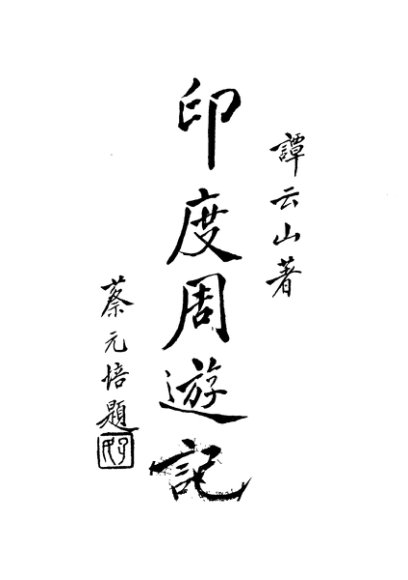 譚云山著
印度周遊記
蔡元培題